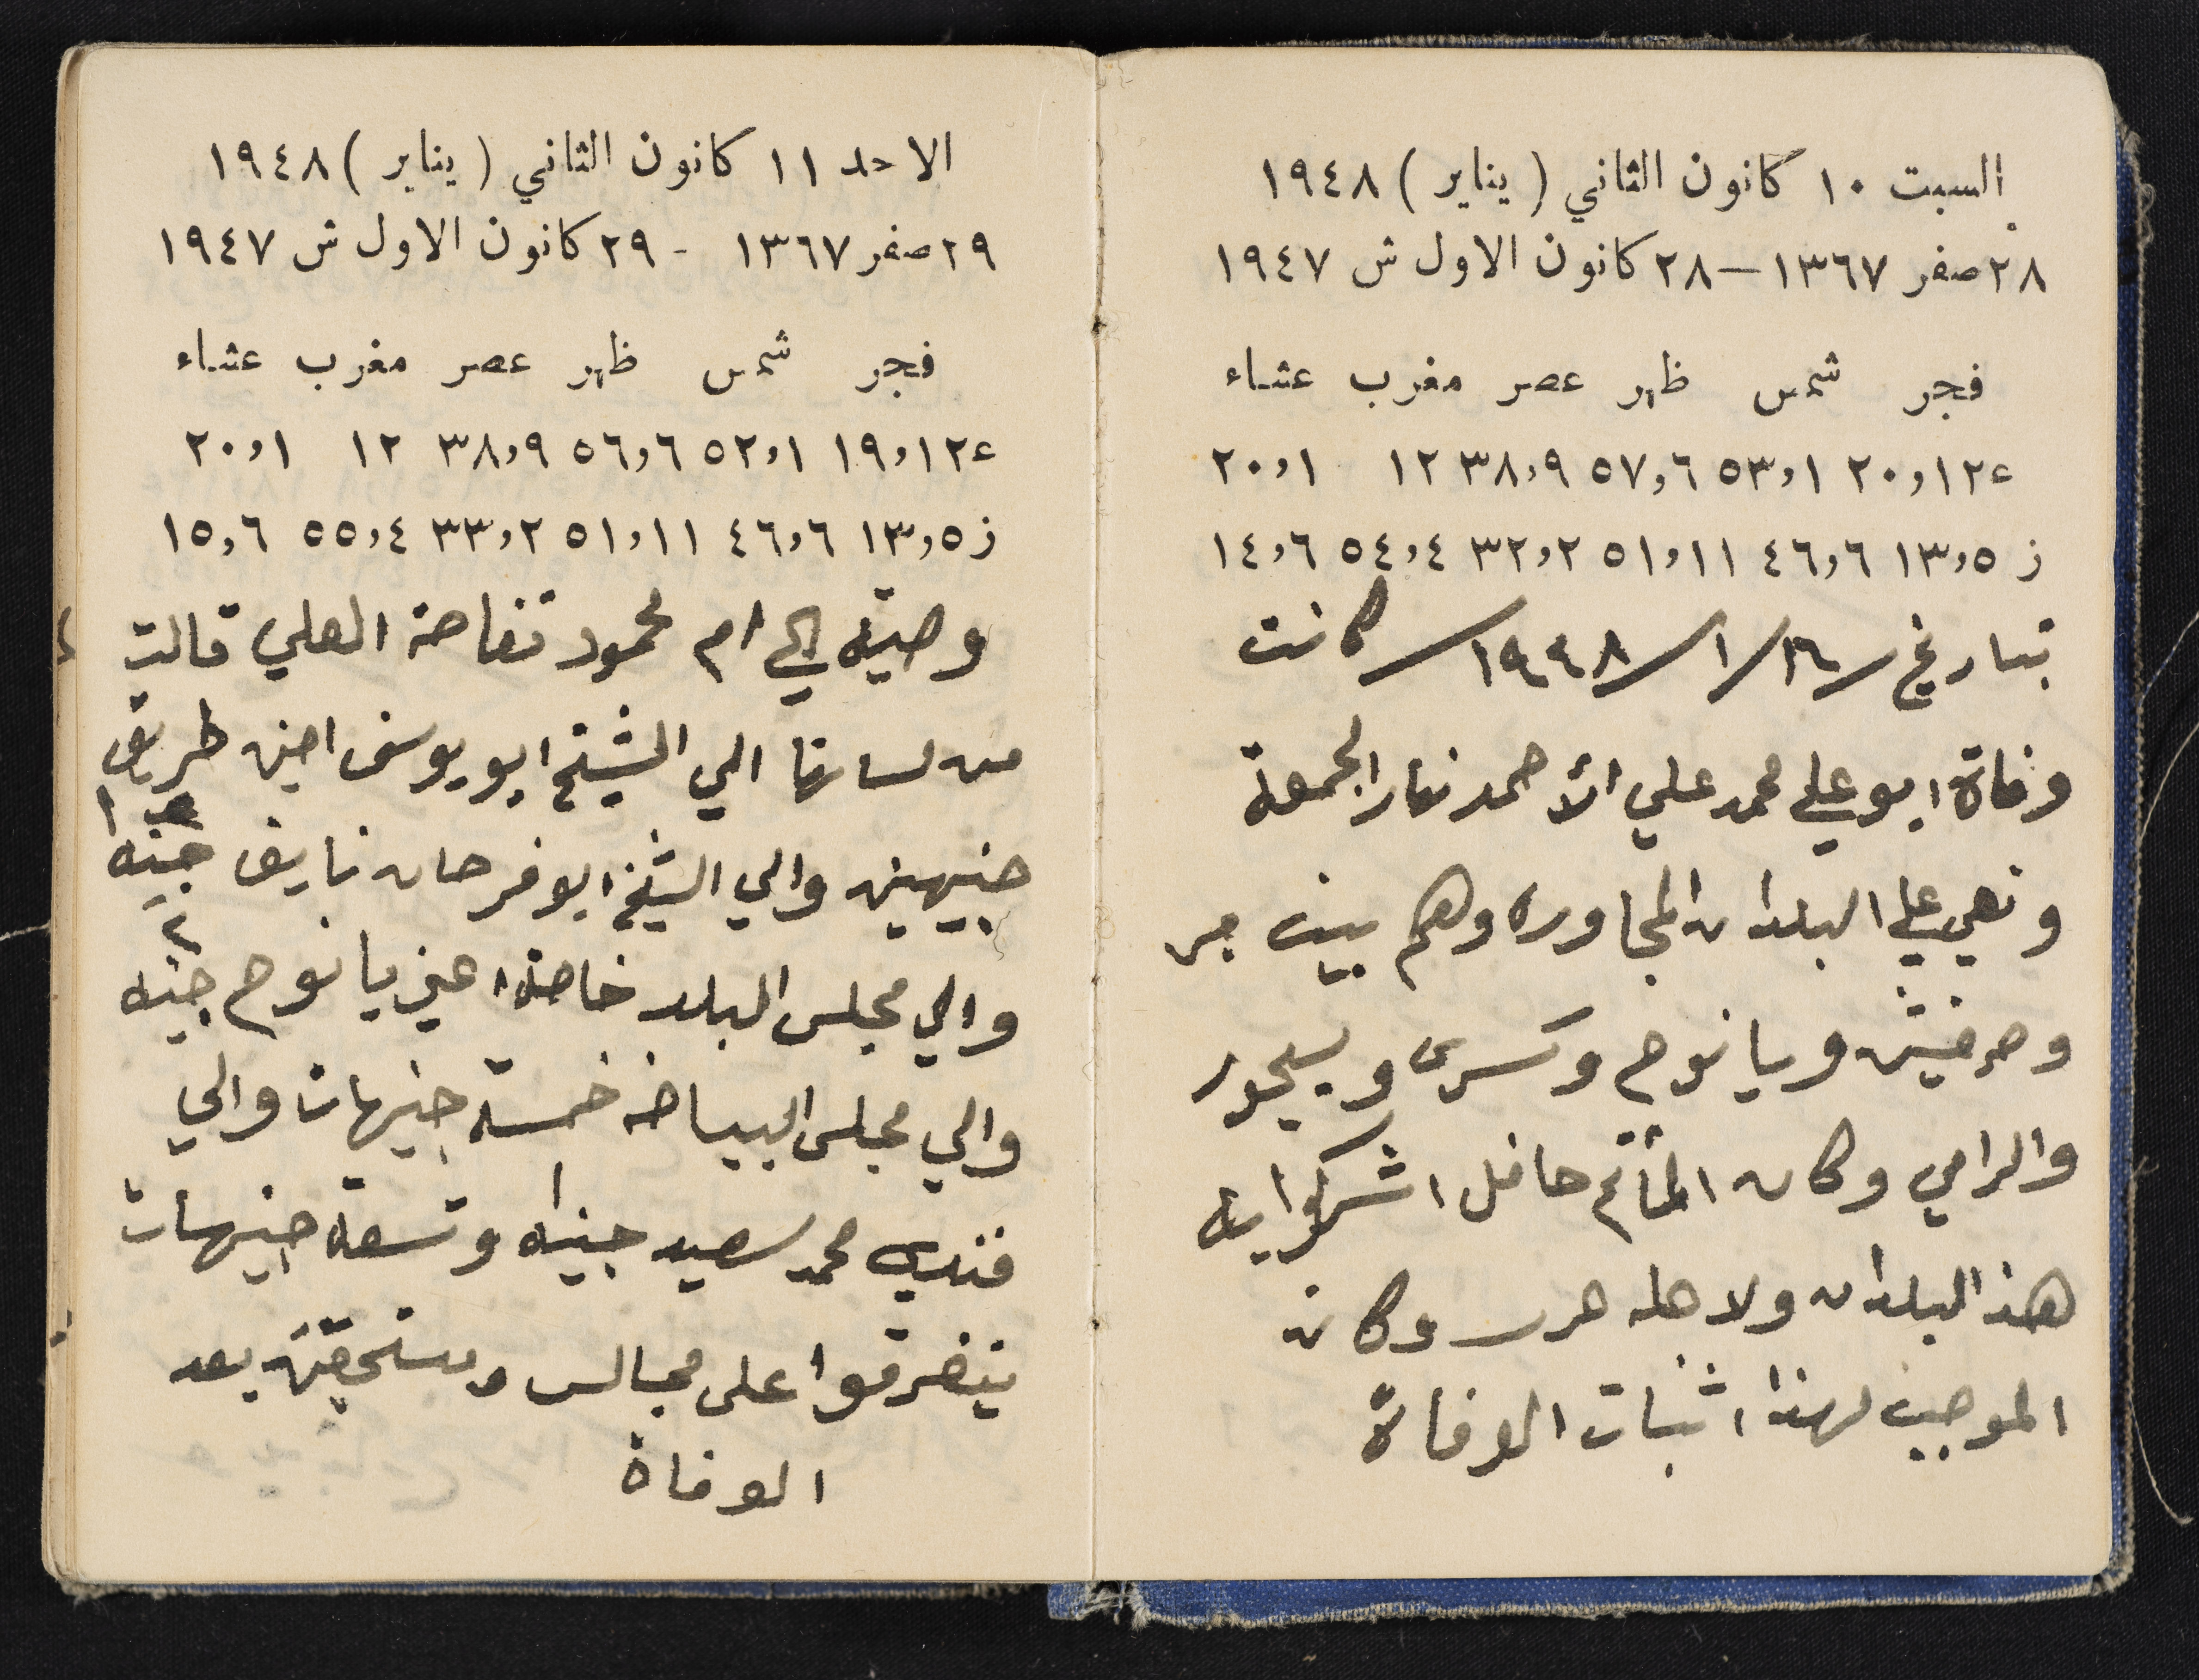 السبت ١٠ كانون الثاني ( يناير ) ١٩٤٨
٢٨ صفر ١٣٦٧ — ٢٨ كانون الاول ش ١٩٤٧
فجر شمس ظهر عصر مغرب عشاء
ع ١٢و٢٠ ١و٥٣ ٦و٥٧ ٩و٣٨ ١٢ ١و٢٠
ز ٥و١٣ ٦و٤٦ ١١و٥١ ٢و٣٢ ٤و٥٤ ٦و١٤
بتاريخ ١٦/١/١٩٤٨ كانت
وفاة ابو علي محمد علي الأحمد نهار الجمعة
ونعي على البلدان المجاوره وهم بيت جن
وحرفيش ويانوح وكسرى وسحور
والرامي وكان المأتم حافل اشتركوا به
هذا البلدان ولاهله وكان
الموجب لهذا اثبات الوفاة
الاحد ١١ كانون الثاني ( يناير ) ١٩٤٨
٢٩ صفر ١٣٦٧ - ٢٩ كانون الاول ش ١٩٤٧
فجر شمس ظهر عصر مغرب عشاء
ع ١٢و١٩ ١و٥٢ ٦و٥٦ ٩و٣٨ ١٢ ١و٢٠
ز ٥و١٣ ٦و٤٦ ١١و٥١ ٢و٣٣ ٤و٥٥ ٦و١٥
وصية الي ام محمود تفاحة العلي قالت
من لسانها الي الشيخ ابو يوسف امين طريف
جنيهين والي الشيخ ابو فرحان نايف جنيه ١
والي مجلس البلد خاصة اعني يانوح جنيه ٢
والي مجلس البياضه خمسة جنيهات والي
فندي محمد سعيد جنيه ١ وتسعة جنيهات
يتفرقوا على مجالس ومستحقين بعد
الوفاة